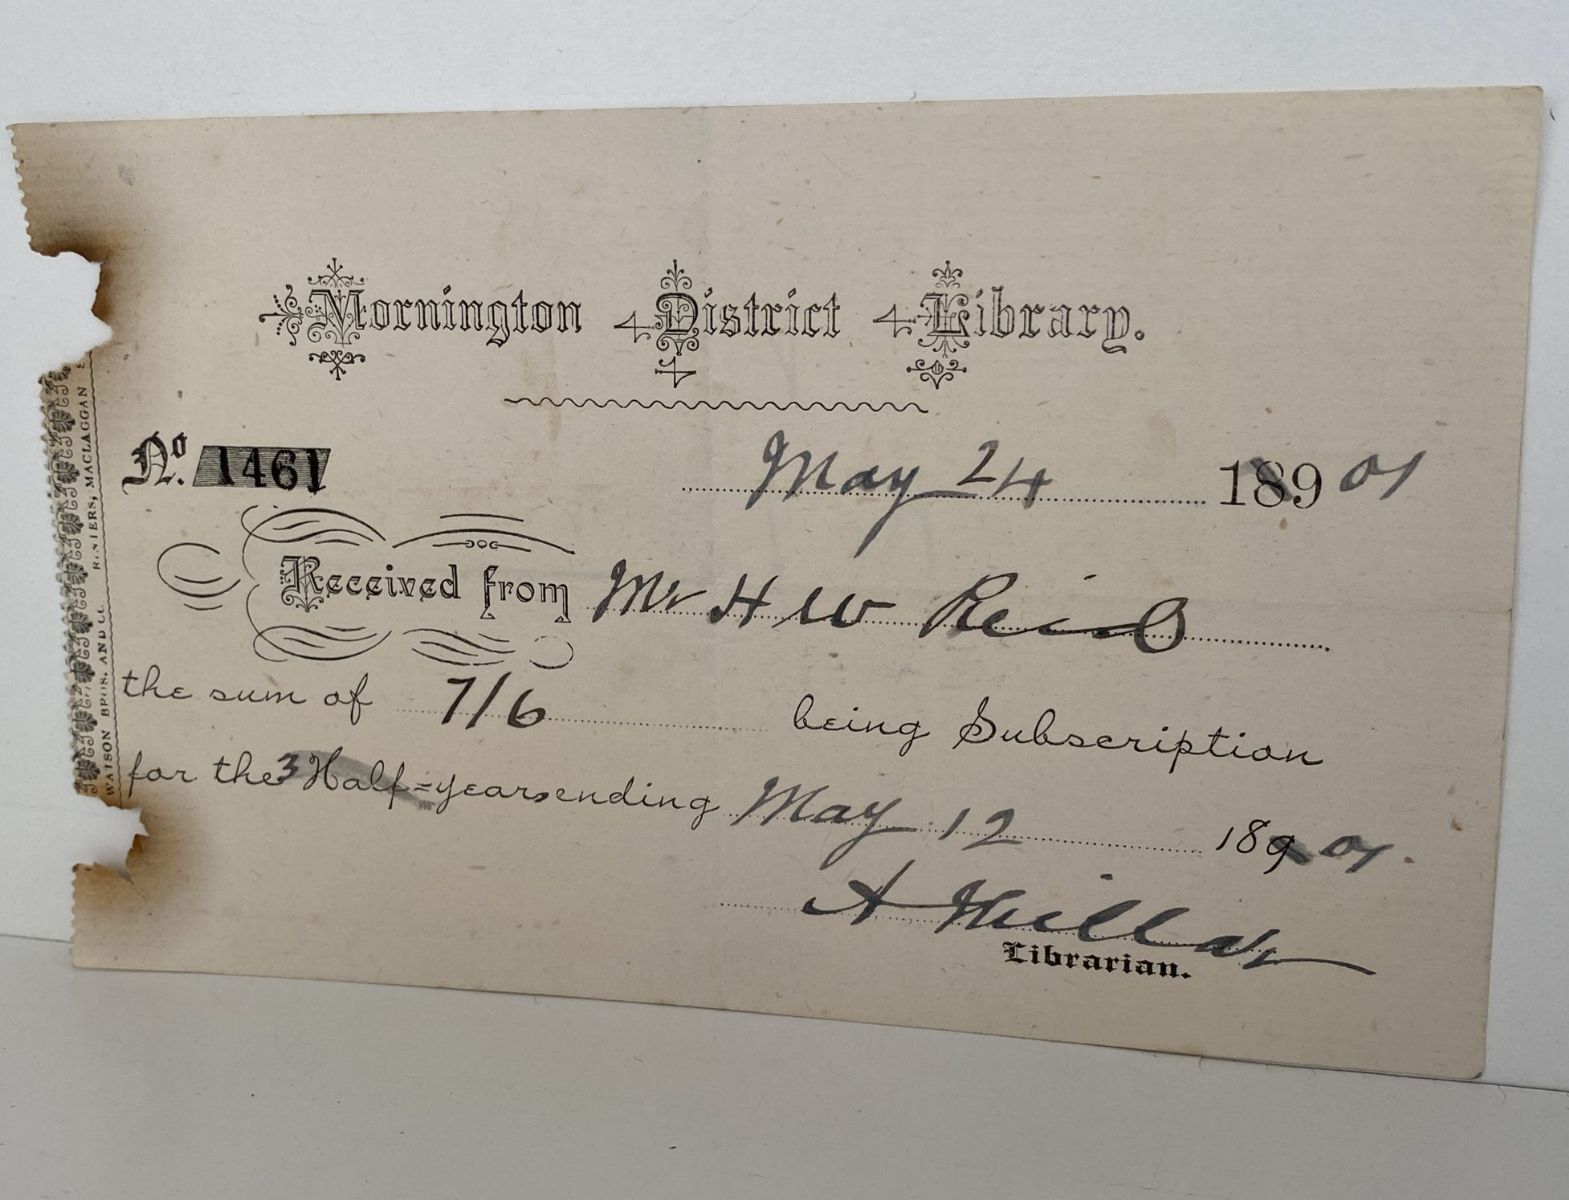 Mornington District Library.
No. 1461
May 24 189 01
Received from Mr H W Reid
the sum of 7/6 being Subscription
for the 3 Half=years ending May 12 189 01
A Millar
Librarian.
BROS. AND CO. MACLAGGAN